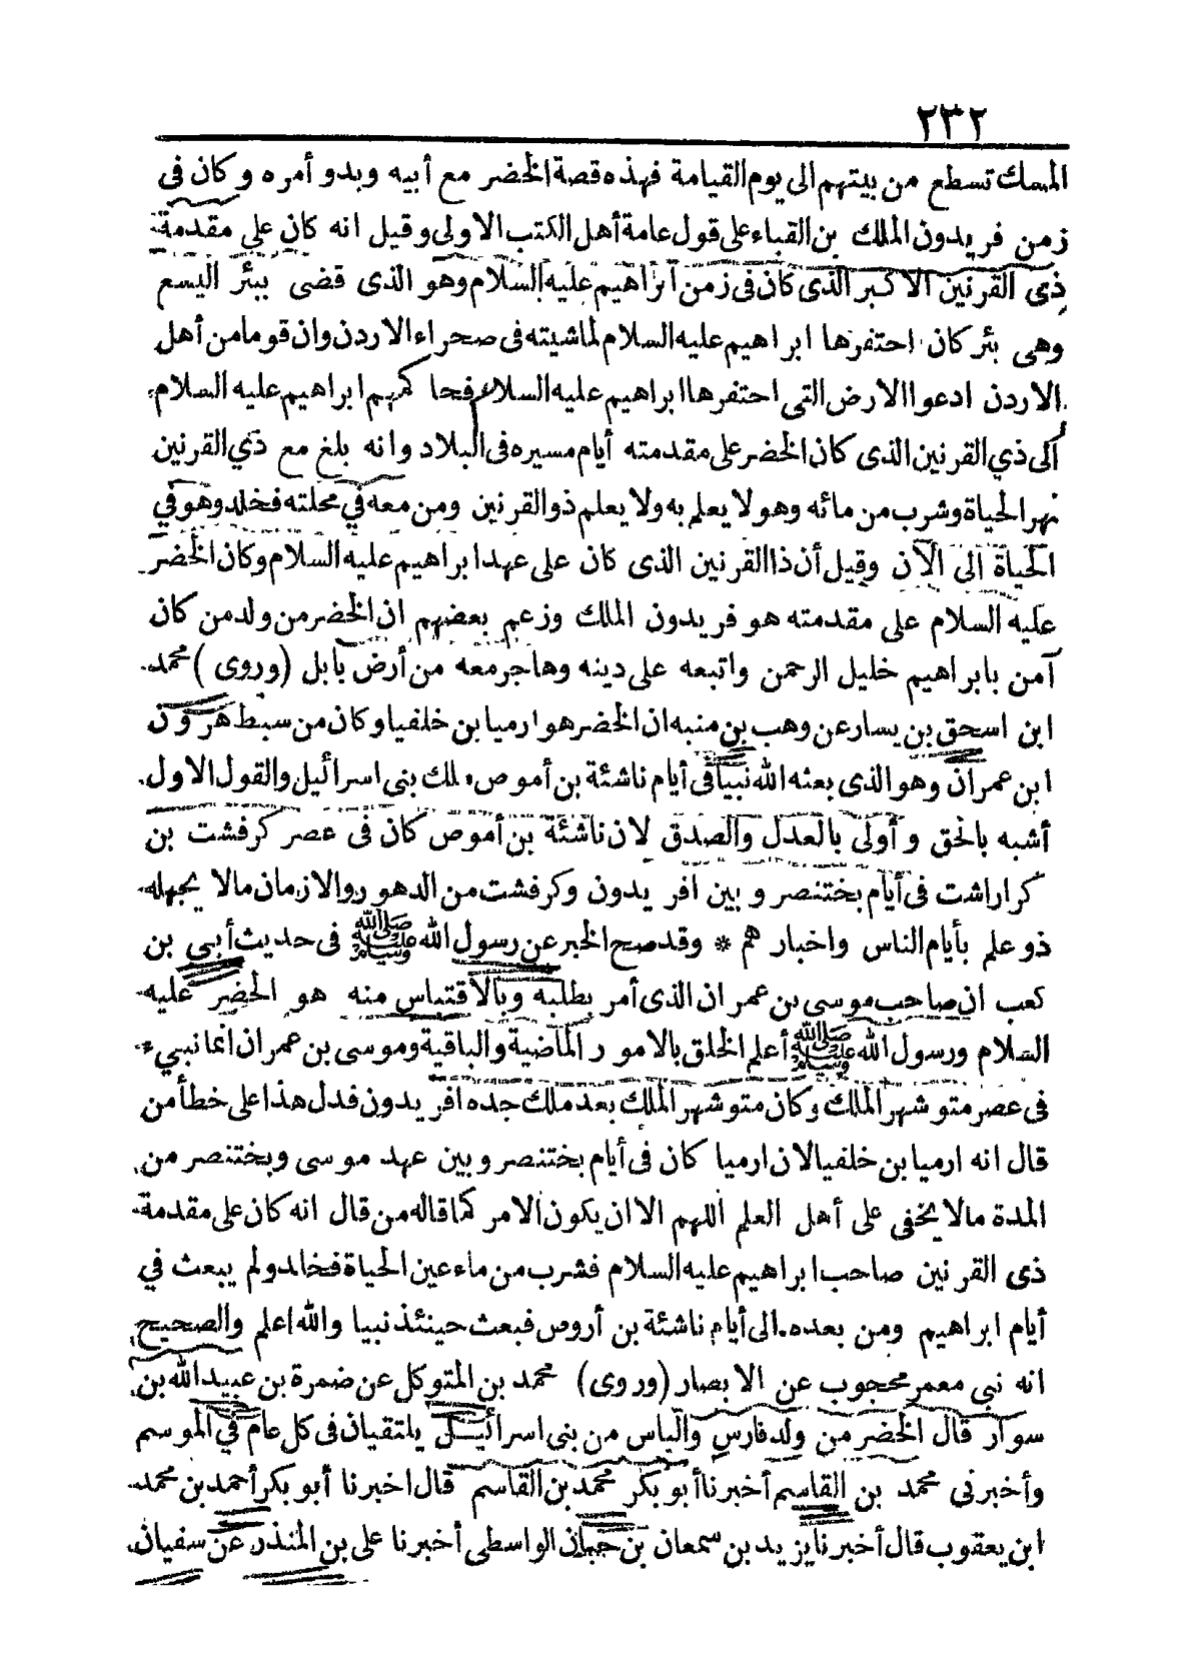 ٢٣٢
المسك تسطع من بيتهم الى يوم القيامة فهذه قصة الخضر مع أبيه وبدو أمره وكان فى
زمن فريدون الملك بن القباء على قول عامة أهل الكتب الاولى وقيل انه كان على مقدمة
ذى القرنين الاكبر الذى كان فى زمن ابراهيم عليه السلام وهو الذى قضى ببئر اليسع
وهى بئر كان احتفرها ابراهيم عليه السلام لماشيته فى صحراء الاردن وان قوما من أهل
الاردن ادعوا الارض التى احتفرها ابراهيم عليه السلام فحاكمهم ابراهيم عليه السلام
الى ذي القرنين الذى كان الخضر على مقدمته أيام مسيره فى البلاد وانه بلغ مع ذي القرنين
نهر الحياة وشرب من مائه وهو لا يعلم به ولا يعلم ذو القرنين ومن معه في محلته فخلد وهو في
الحياة الى الآن وقيل أن ذا القرنين الذى كان على عهد ابراهيم عليه السلام وكان الخضر
عليه السلام على مقدمته هو فريدون الملك وزعم بعضهم ان الخضر من ولد من كان
آمن بابراهيم خليل الرحمن واتبعه على دينه وهاجر معه من أرض بابل (وروى) محمد
ابن اسحق بن يسار عن وهب بن منبه ان الخضر هو ارميا بن خلفيا وكان من سبط هرون
ابن عمران وهو الذى بعثه الله نبيا فى أيام ناشئة بن أموص ملك بنى اسرائيل والقول الاول
أشبه بالحق وأولى بالعدل والصدق لان ناشئة بن أموص كان فى عصر كرفشت بن
كراراشت فى أيام بختنصر وبين افريدون وكرفشت من الدهور والازمان مالا يجهله
ذو علم بأيام الناس واخبارهم * وقد صح الخبر عن رسول الله ﷺ فى حديث أبي بن
كعب ان صاحب موسى بن عمران الذى أمر بطلبه وبالاقتباس منه هو الخضر عليه
السلام ورسول الله ﷺ أعلم الخلق بالامور الماضية والباقية وموسى بن عمران انما نبيء
فى عصر متوشهر الملك وكان متوشهر الملك بعد ملك جده افريدون فدل هذا على خطأ من
قال انه ارميا بن خلفيا لان ارميا كان فى أيام بختنصر وبين عهد موسى وبختنصر من
المدة مالا يخفى على أهل العلم اللهم الا ان يكون الامر كما قاله من قال انه كان على مقدمة
ذى القرنين صاحب ابراهيم عليه السلام فشرب من ماء عين الحياة فخلد ولم يبعث في
أيام ابراهيم ومن بعده الى أيام ناشئة بن أروص فبعث حينئذ نبيا والله اعلم والصحيح
انه نبي معمر محجوب عن الابصار (وروى) محمد بن المتوكل عن ضمرة بن عبيد الله بن
سوار قال الخضر من ولد فارس والياس من بنى اسرائيل يلتقيان فى كل عام في الموسم
وأخبرنى محمد بن القاسم أخبرنا أبو بكر محمد بن القاسم قال اخبرنا أبو بكر أحمد بن محمد
ابن يعقوب قال أخبرنا يزيد بن سمعان بن حبان الواسطى أخبرنا على بن المنذر عن سفيان